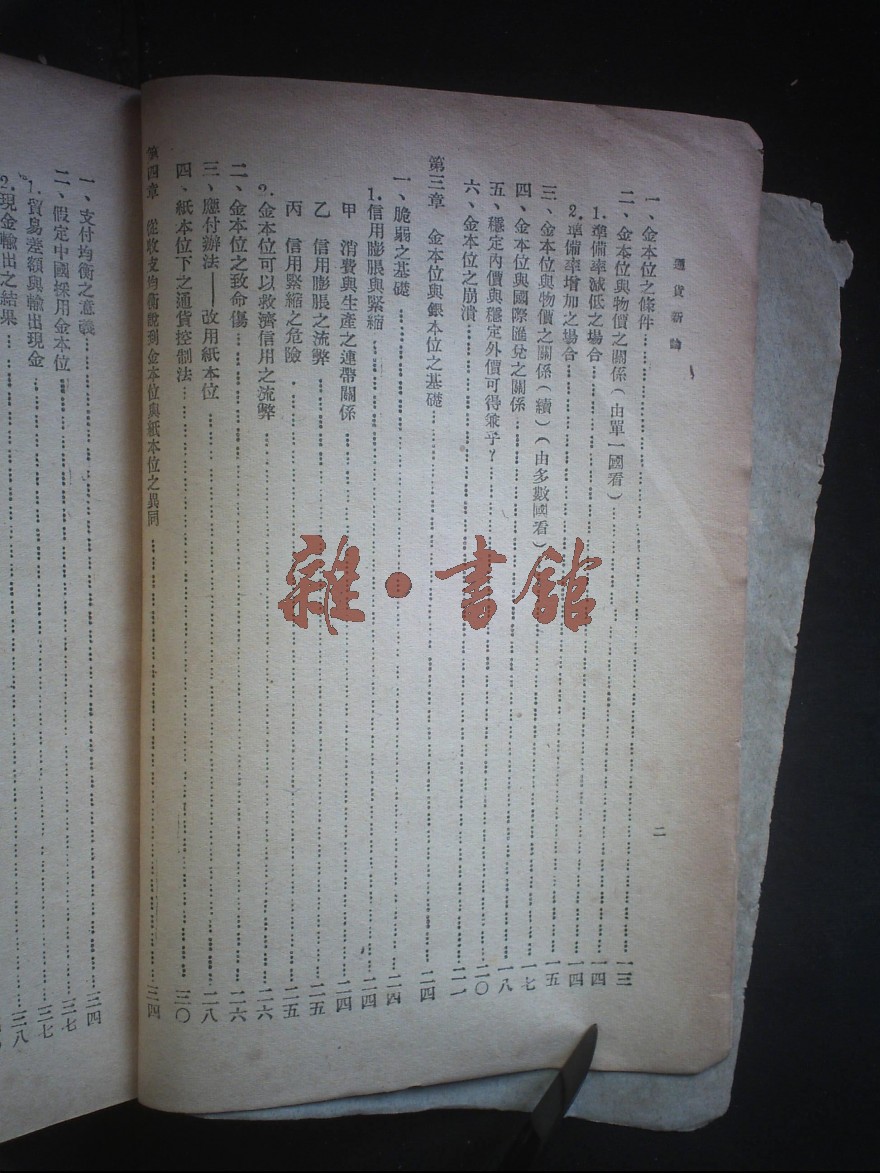 通貨新論
二
一、金本位之條件……一三
二、金本位與物價之關係(由單一國看)……一四
1.準備率減低之場合……一四
2.準備率增加之場合……一四
三、金本位與物價之關係(續)(由多數國看)……一五
四、金本位與國際匯兌之關係……一七
五、穩定內價與穩定外價可得兼乎?……一八
六、金本位之崩潰……二〇
第三章 金本位與銀本位之基礎……二四
一、脆弱之基礎……二四
1.信用膨脹與緊縮……二四
甲 消費與生產之連帶關係……二四
乙 信用膨脹之流弊……二五
丙 信用緊縮之危險……二五
2.金本位可以救濟信用之流弊……二六
二、金本位之致命傷……二六
三、應付辦法——改用紙本位……二八
四、紙本位下之通貨控制法……三〇
第四章 從收支均衡說到金本位與紙本位之異同……三四
一、支付均衡之意義……三四
二、假定中國採用金本位……三七
1.貿易差額與輸出現金……三七
2.現金輸出之結果……三八
雜·書館